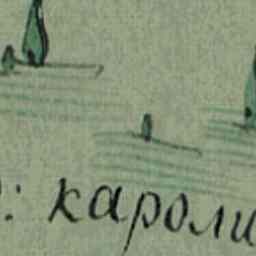 : кароли